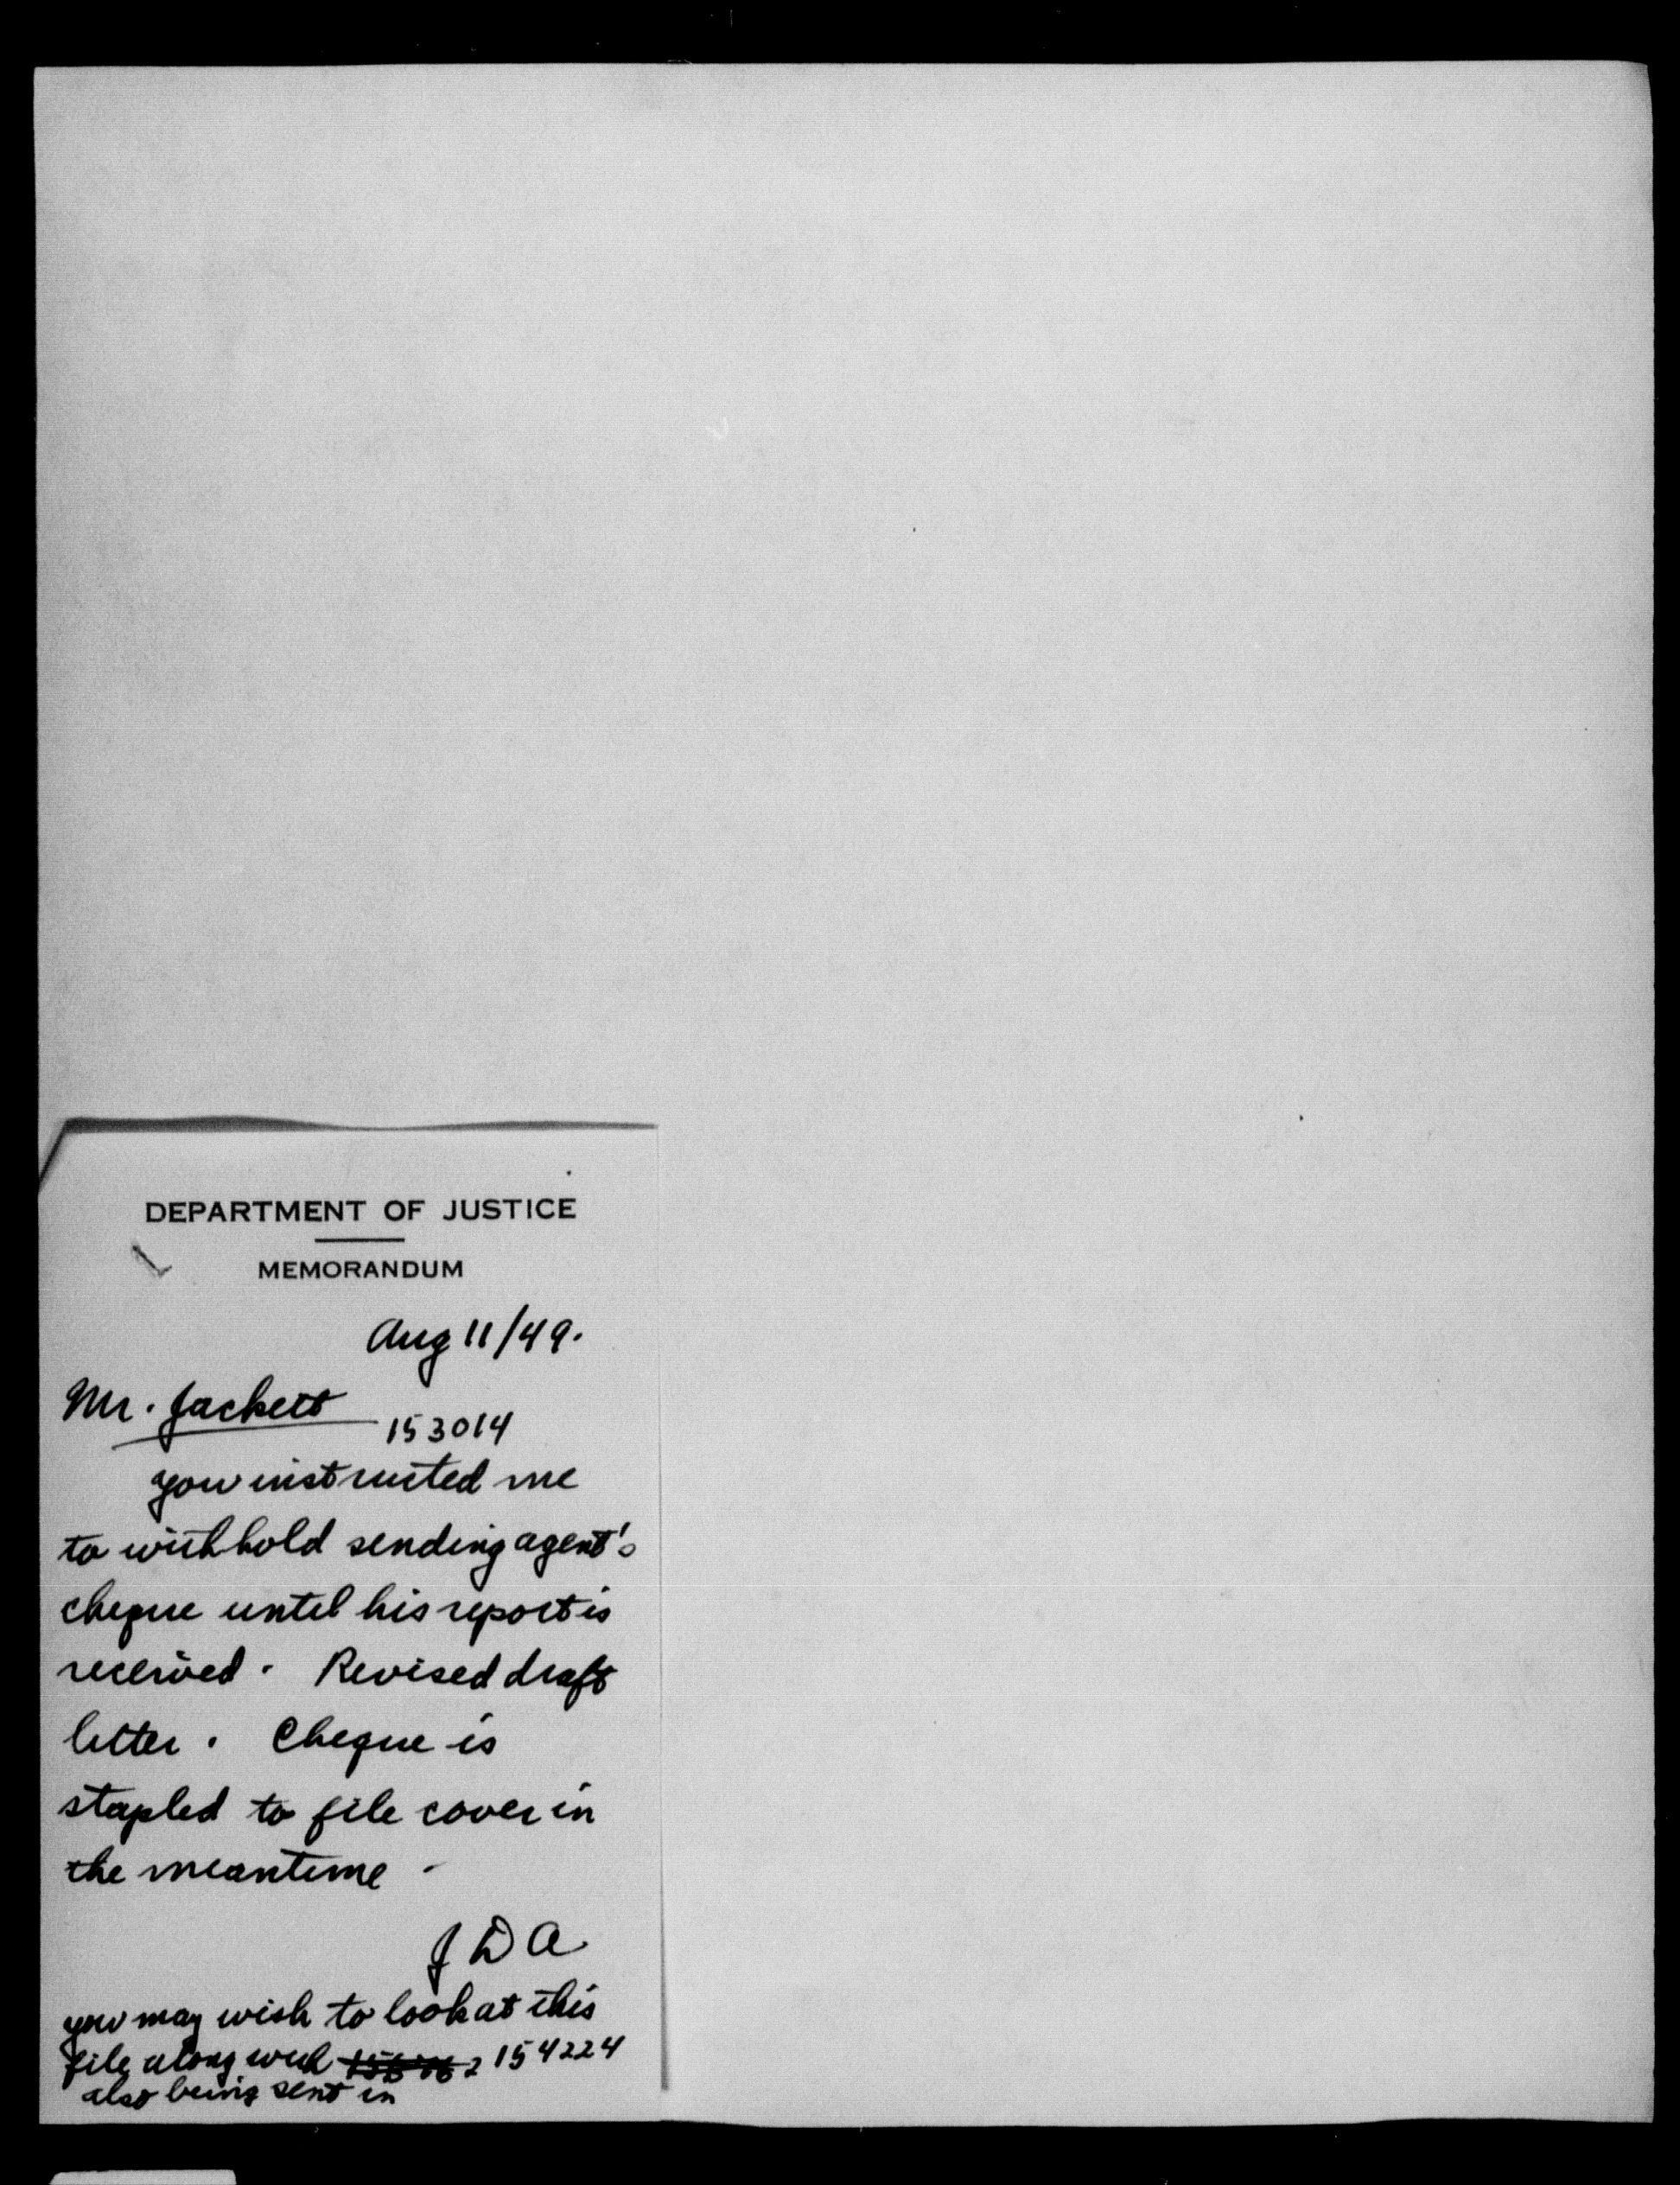 DEPARTMENT OF JUSTICE
MEMORANDUM
Aug 11/49.
Mr. Jackett
153014
you instructed me
to withhold sending agent's
cheque until his report is
received. Revised draft
letter. Cheque is
stapled to file cover in
the meantime.
JDA
you may wish to look at this
file along with 154224
also being sent in